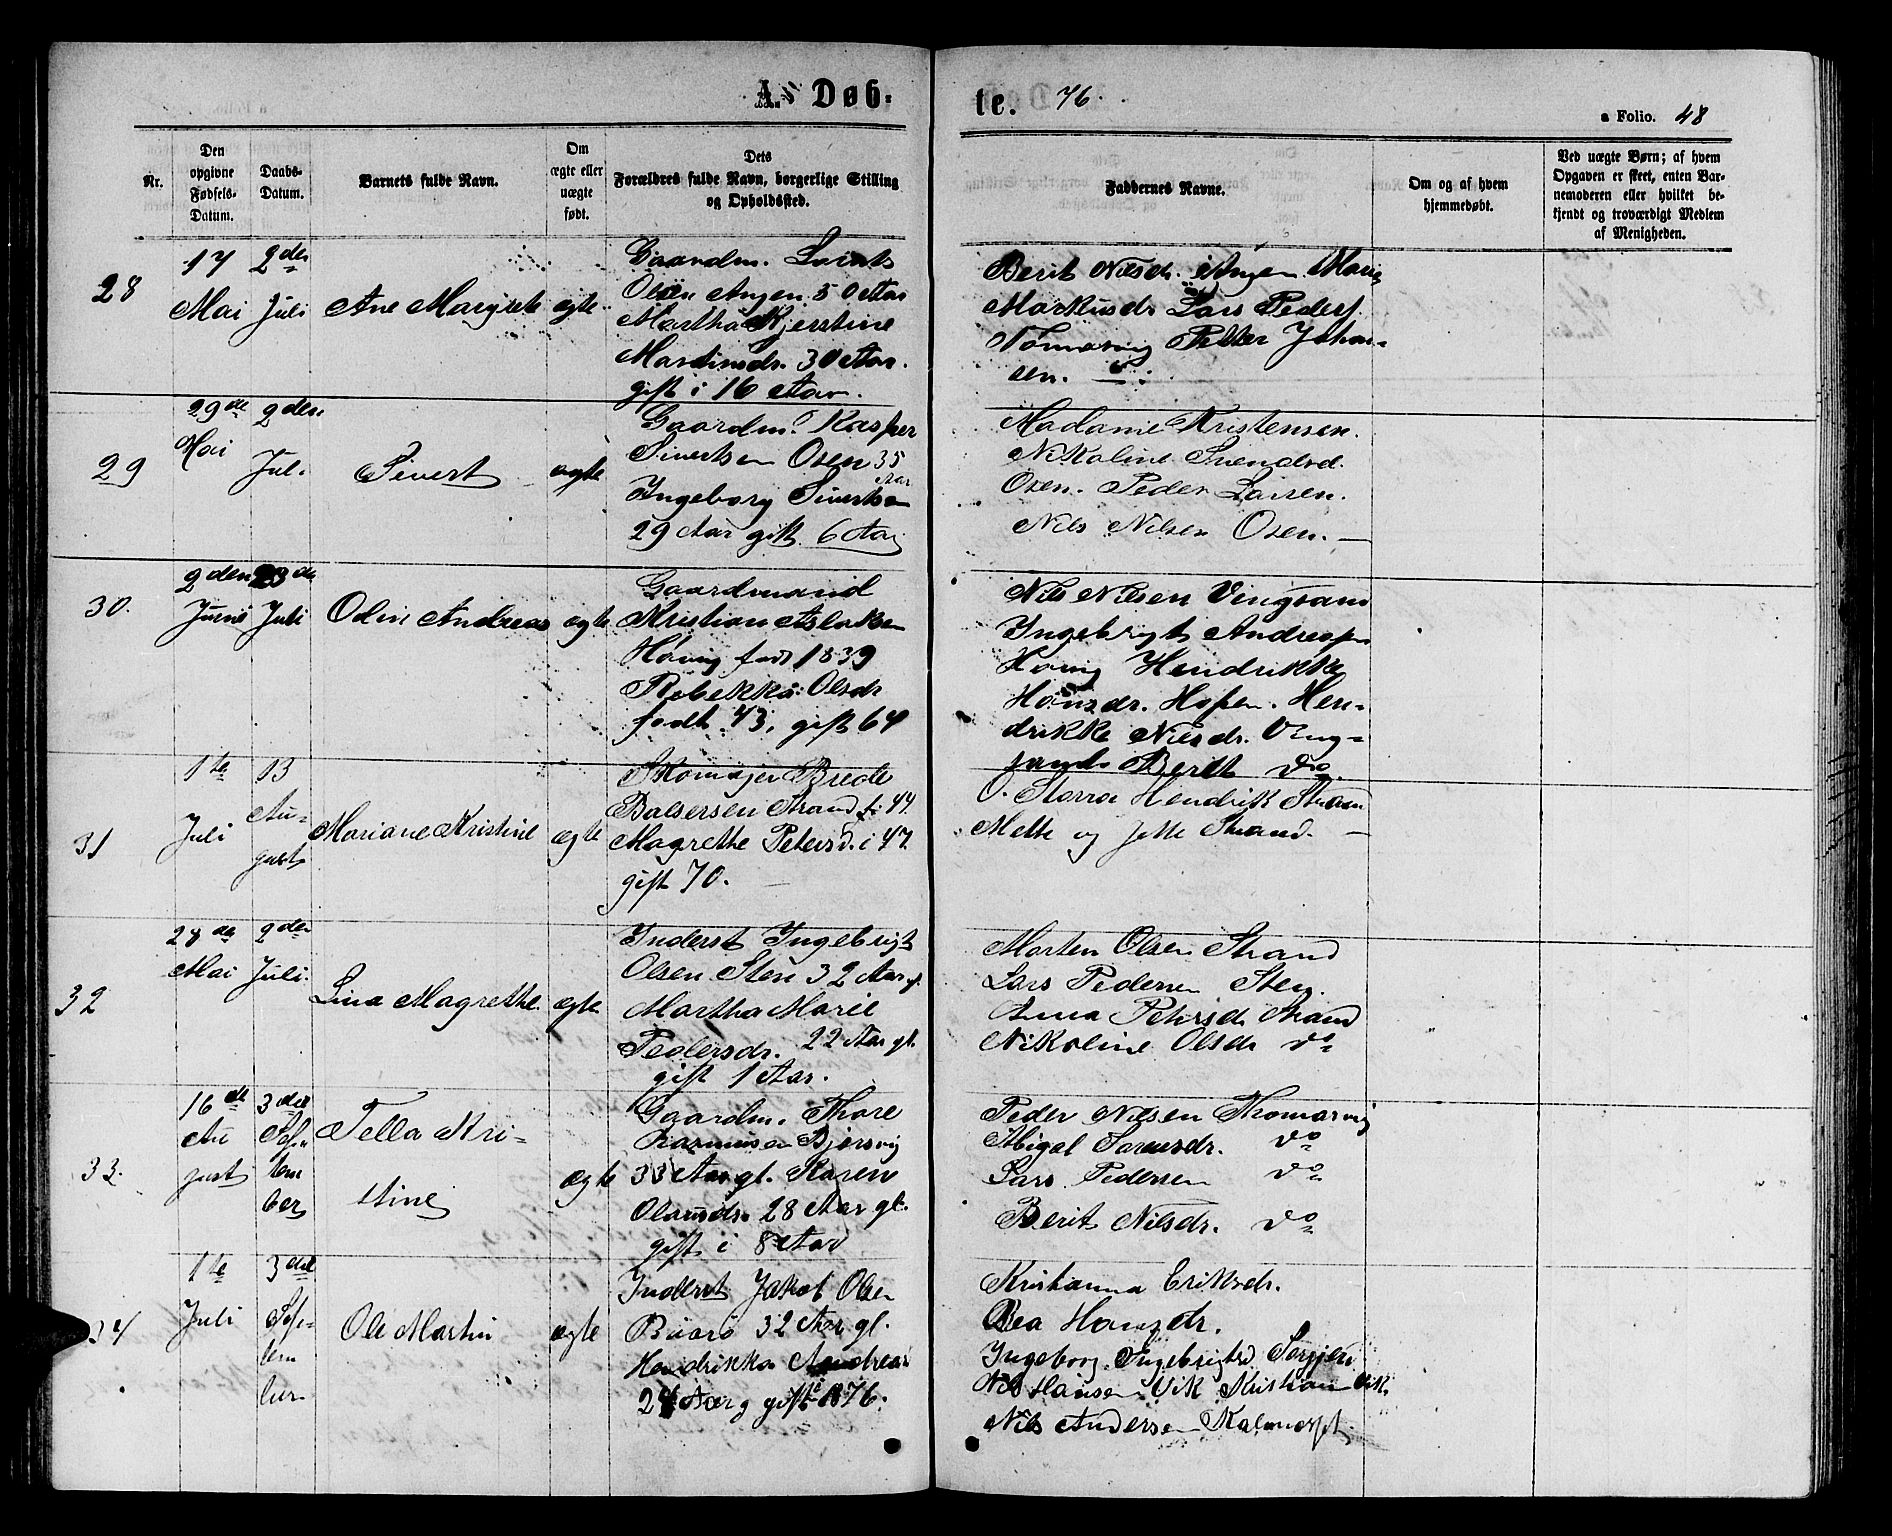 A. Døb-
te. 76.
a Folio. 48
Nr.
Den
opgivne
Fødsels-
Datum.
Daabs-
Datum.
Barnets fulde Navn.
Om
ægte eller
uægte
født.
Dets
Forældres fulde Navn, borgerlige Stilling
og Opholdssted.
Faddernes Navne.
Om og af hvem
hjemmedøbt.
Ved uægte Børn; af hvem
Opgaven er skeet, enten Bar-
nemoderen eller hvilket be-
kjendt og troværdigt Medlem
af Menigheden.
28
17
Mai
2den
Juli
Ane Margrete
ægte
Gaardm.
Olsen Angen 50 Aar
Martha Kjerstine
Martinsdr. 30 Aar.
gift i 16 Aar.
Berit Nilsdr. Angen Marie
Markusdr Lars Peders.
Tømmervig Petter Johan-
sen.
29
29de
Mai
2den
Juli
Sivert
ægte
Gaardm. Kasper
Sivertsen Osen 35
Aar
Ingeborg Sivertsen
29 Aar gift 6 Aar
Madame Kristensen.
Nikoline Svendsd.
Osen. Peder Larsen.
Nils Nilsen Osen.
30.
2den
Juni
23de
Juli
Odin Andreas
ægte
Gaardmand
Kristian Aslaksen
Hovig født 1839
Rebekka Olsdr
født 43, gift 64
Nils Nilsen Vingsand
Ingebrigt Andreasen
Hovig Hendrikke
Hansdr. Hopen. Hen-
drikke Nilsdr. Ving-
sand. Berit do
31
1te
Juli
13
Au-
gust
Mariane Kristine
ægte
Skomager Brede
Balsersen Strand f. 44.
Magrethe Petersd. i 47
gift 70.
O. Storra Hendrik Strand
Mette og Jette Strand.
32
28de
Mai
2den
Juli.
Lina Magrethe
ægte
Inderst Ingebrigt
Olsen Sten 32 Aar g.
Martha Marie
Pedersdr. 22 Aar gl.
gift 1 Aar.
Morten Olsen Strand
Lars Pedersen Sten.
Anna Petersd. Strand
Nikoline Olsdr do
33.
16de
Au
gust
3die
Sep-
tem
ber
Tella Kri-
stine
ægte
Gaardm. Thore
Rasmusen Bjørsvig
33 Aar gl. Karen
Olausdr. 28 Aar gl.
gift i 8 Aar
Peder Nilsen Thomasvig
Abigel Sørensdr. do
Lars Pedersen do
Berit Nilsdr. do
34
1te
Juli
3die
Sep-
tem
ber
Ole Martin
ægte
Inderst Jakob Olsen
32 Aar gl.
Hendrikka Andreas
24 Aar g gift 1876.
Kristianna Eriksdr.
Bea Hansdr.
Ingeborg Ingebrigtsd.
Nils Hansen Vik Kristian Vik
Nils Andersen